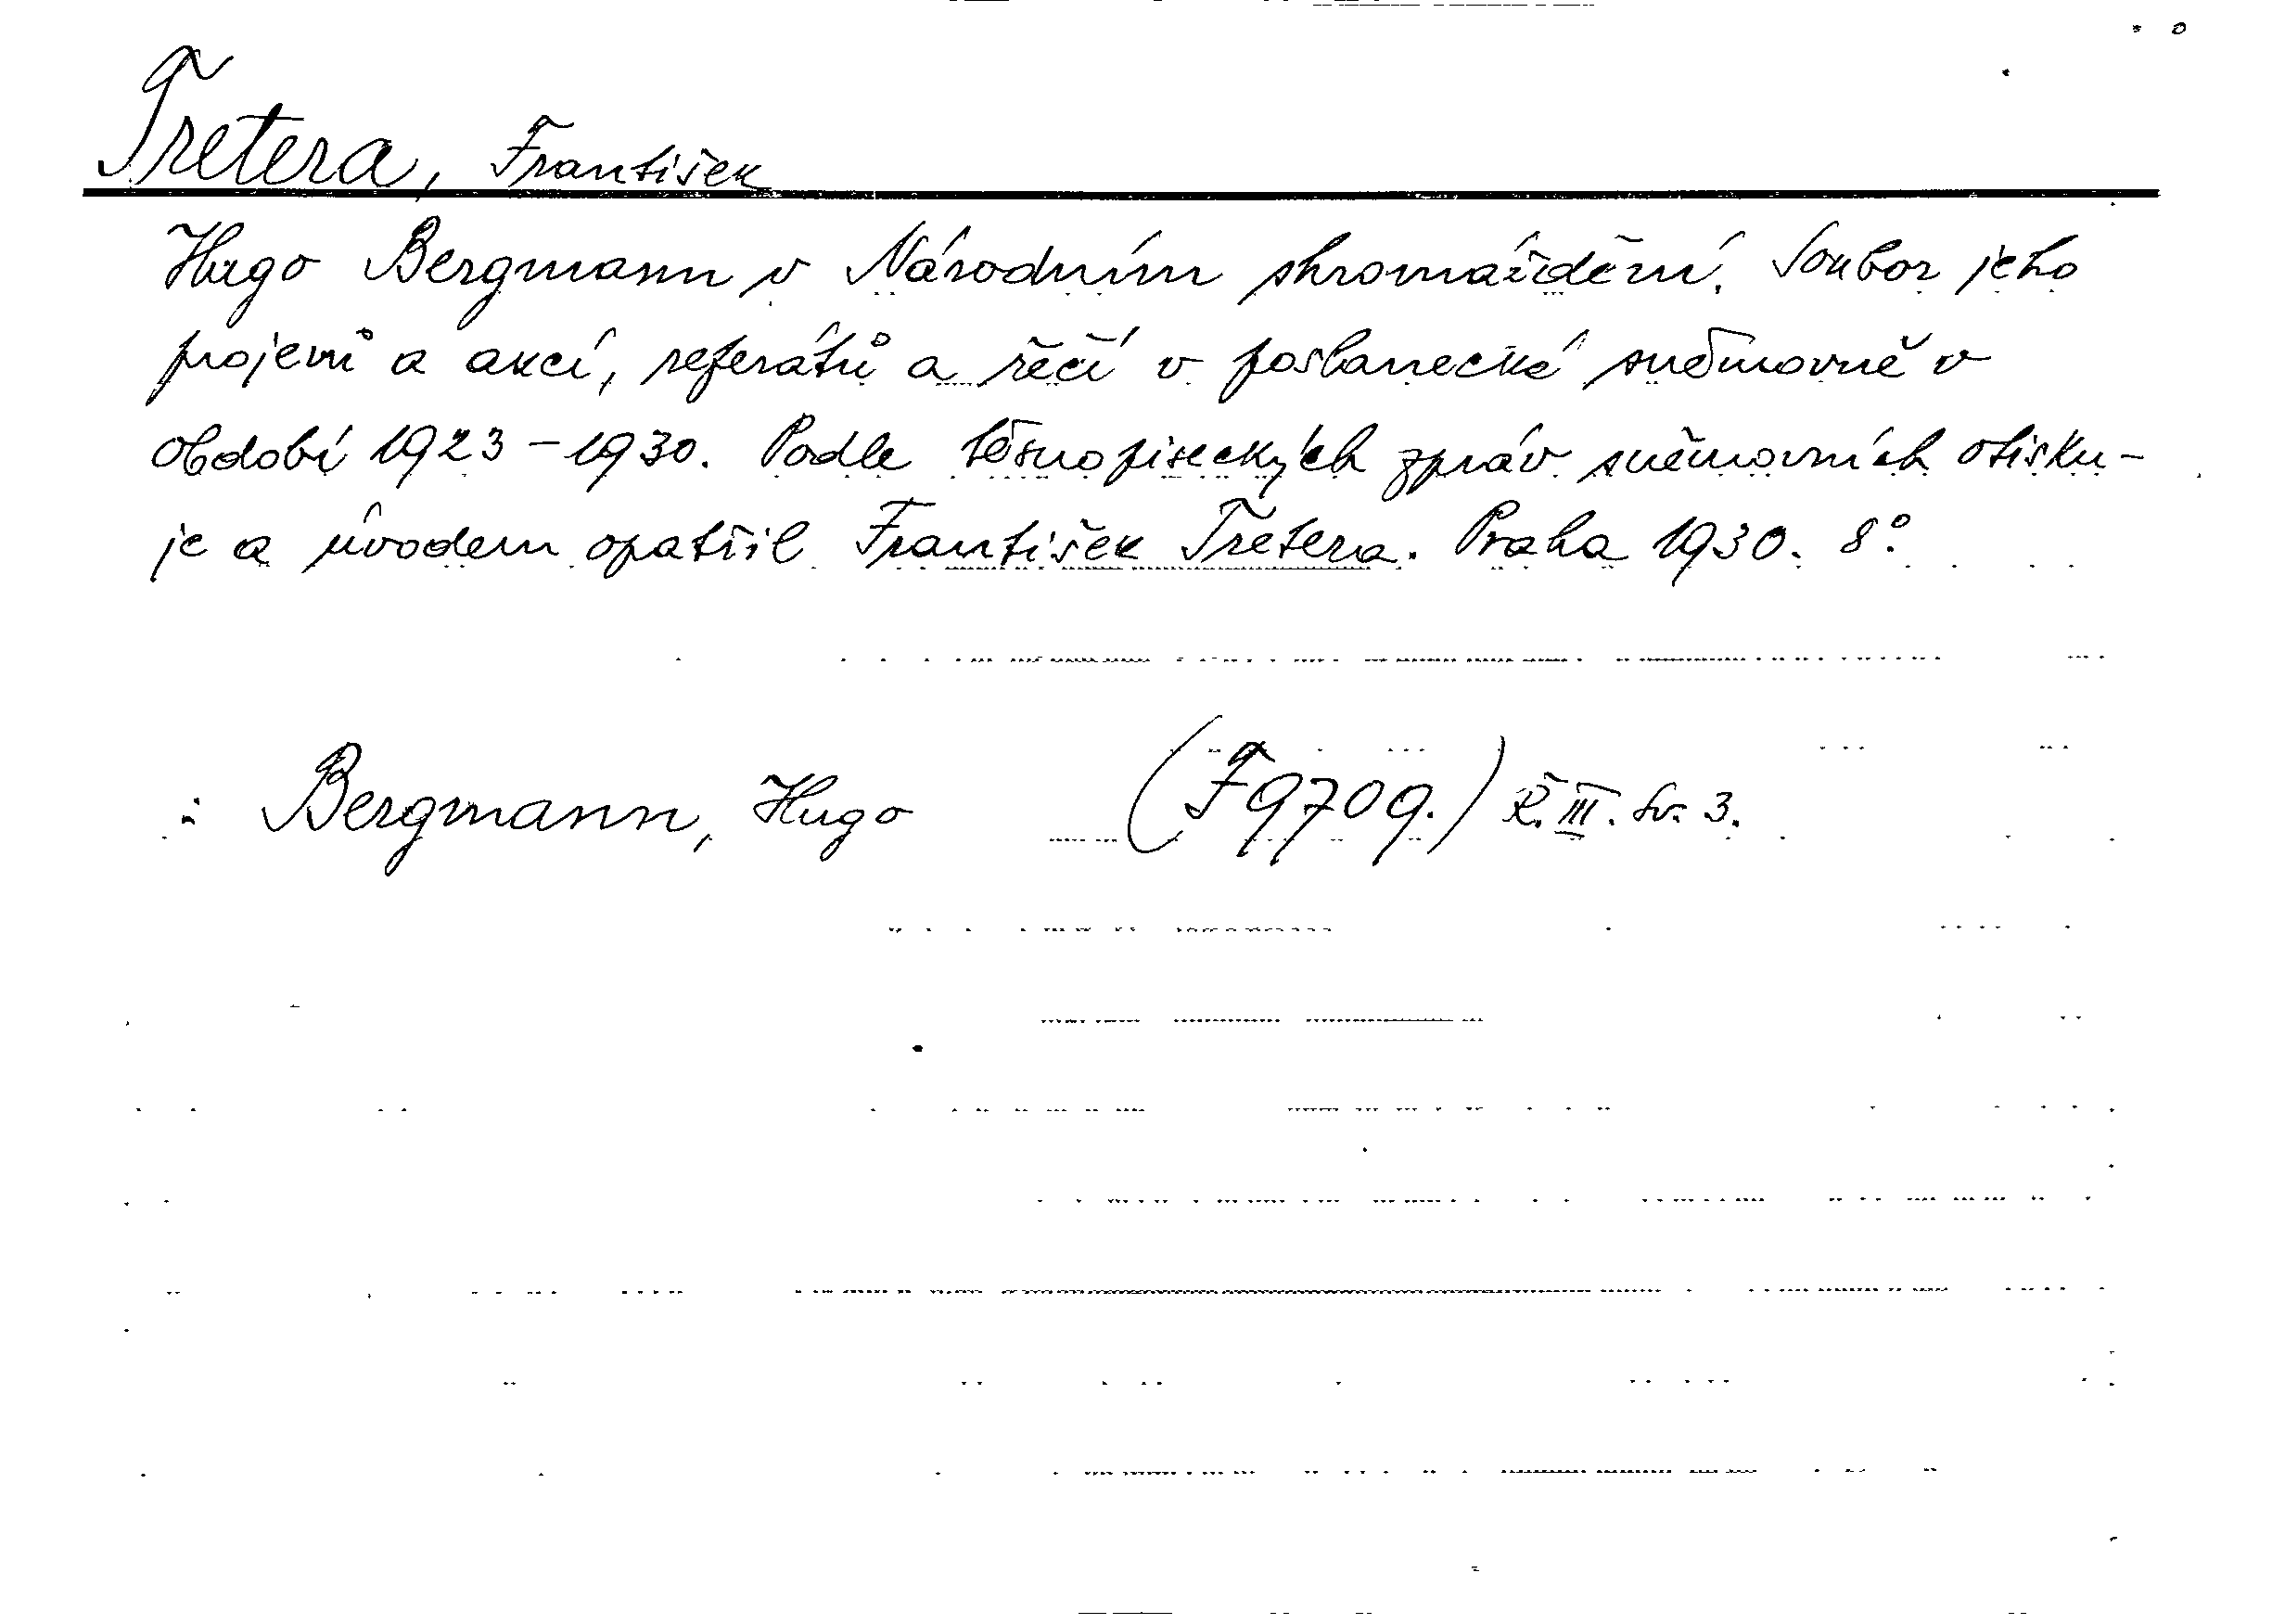 Tretera, František
Hugo Bergmann v Národním shromáždění. Soubor jeho
projevů a akcí, referátů a řečí v poslanecké sněmovně v
období 1923-1930. Podle těsnopiseckých zpráv sněmovních otisku-
je a úvodem opatřil František Tretera. Praha 1930. 8°.
: Bergmann, Hugo (F9709.) Ř. III. Sv. 3.